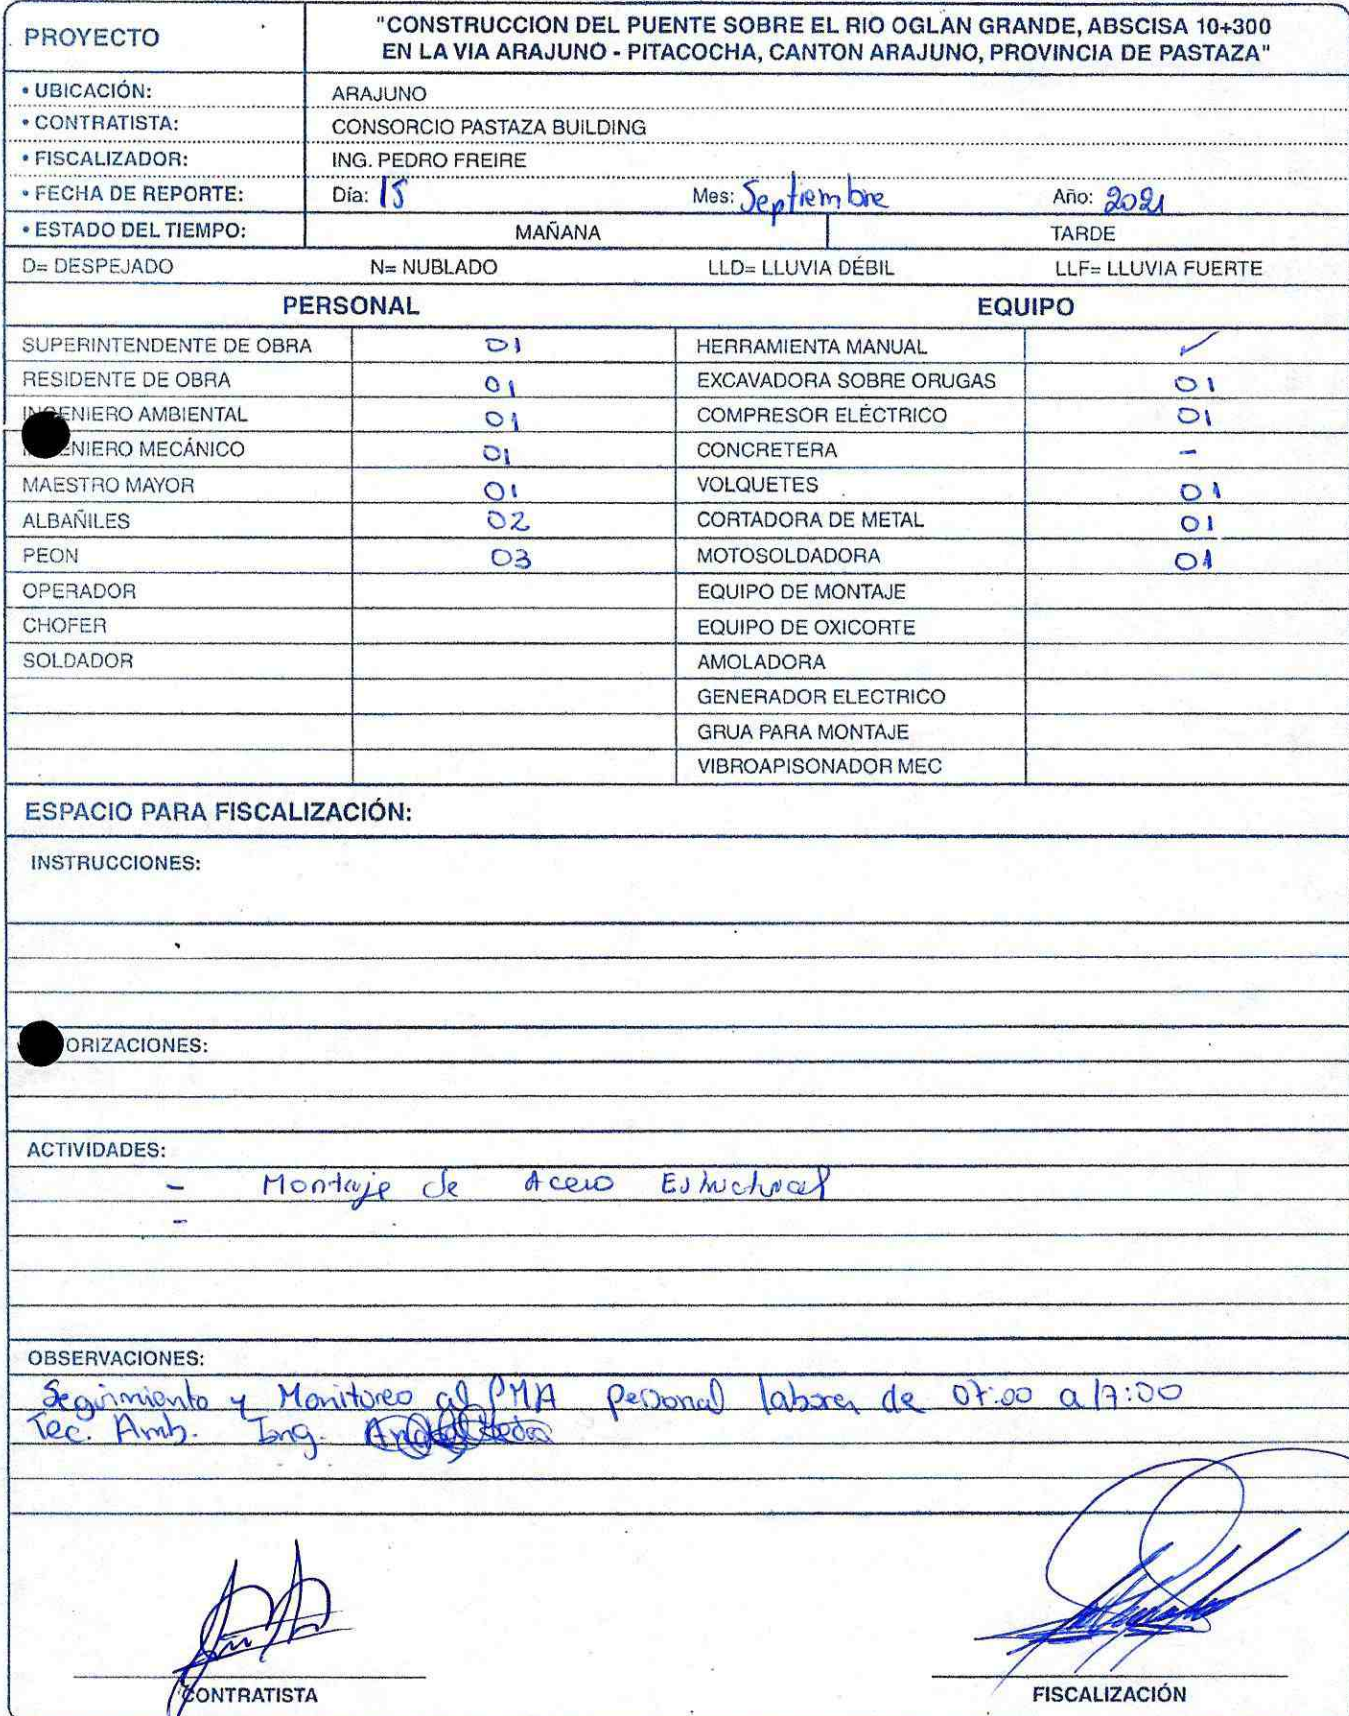 PROYECTO
"CONSTRUCCION DEL PUENTE SOBRE EL RIO OGLAN GRANDE, ABSCISA 10+300
EN LA VIA ARAJUNO - PITACOCHA, CANTON ARAJUNO, PROVINCIA DE PASTAZA"
• UBICACIÓN: ARAJUNO
• CONTRATISTA: CONSORCIO PASTAZA BUILDING
• FISCALIZADOR: ING. PEDRO FREIRE
• FECHA DE REPORTE: Día: 15 Mes: Septiembre Año: 2021
• ESTADO DEL TIEMPO: MAÑANA TARDE
D= DESPEJADO N= NUBLADO LLD= LLUVIA DÉBIL LLF= LLUVIA FUERTE
PERSONAL EQUIPO
SUPERINTENDENTE DE OBRA 01 HERRAMIENTA MANUAL ✓
RESIDENTE DE OBRA 01 EXCAVADORA SOBRE ORUGAS 01
INGENIERO AMBIENTAL 01 COMPRESOR ELÉCTRICO 01
ENIERO MECÁNICO 01 CONCRETERA -
MAESTRO MAYOR 01 VOLQUETES 01
ALBAÑILES 02 CORTADORA DE METAL 01
PEON 03 MOTOSOLDADORA 01
OPERADOR EQUIPO DE MONTAJE
CHOFER EQUIPO DE OXICORTE
SOLDADOR AMOLADORA
GENERADOR ELECTRICO
GRUA PARA MONTAJE
VIBROAPISONADOR MEC
ESPACIO PARA FISCALIZACIÓN:
INSTRUCCIONES:
ORIZACIONES:
ACTIVIDADES:
- Montaje de Acero Estructural
-
OBSERVACIONES:
Seguimiento y Monitoreo al PMA personal labora de 07:00 a 17:00
Tec. Amb. Ing.
CONTRATISTA FISCALIZACIÓN